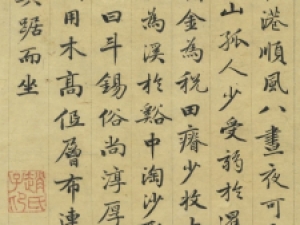 港順風八晝夜可
山孤人少受弱於暹
金為税田瘠少收
為溪於谿中淘沙
曰斗錫俗尚淳厚
用木高低層布連
踞而坐
趙氏子